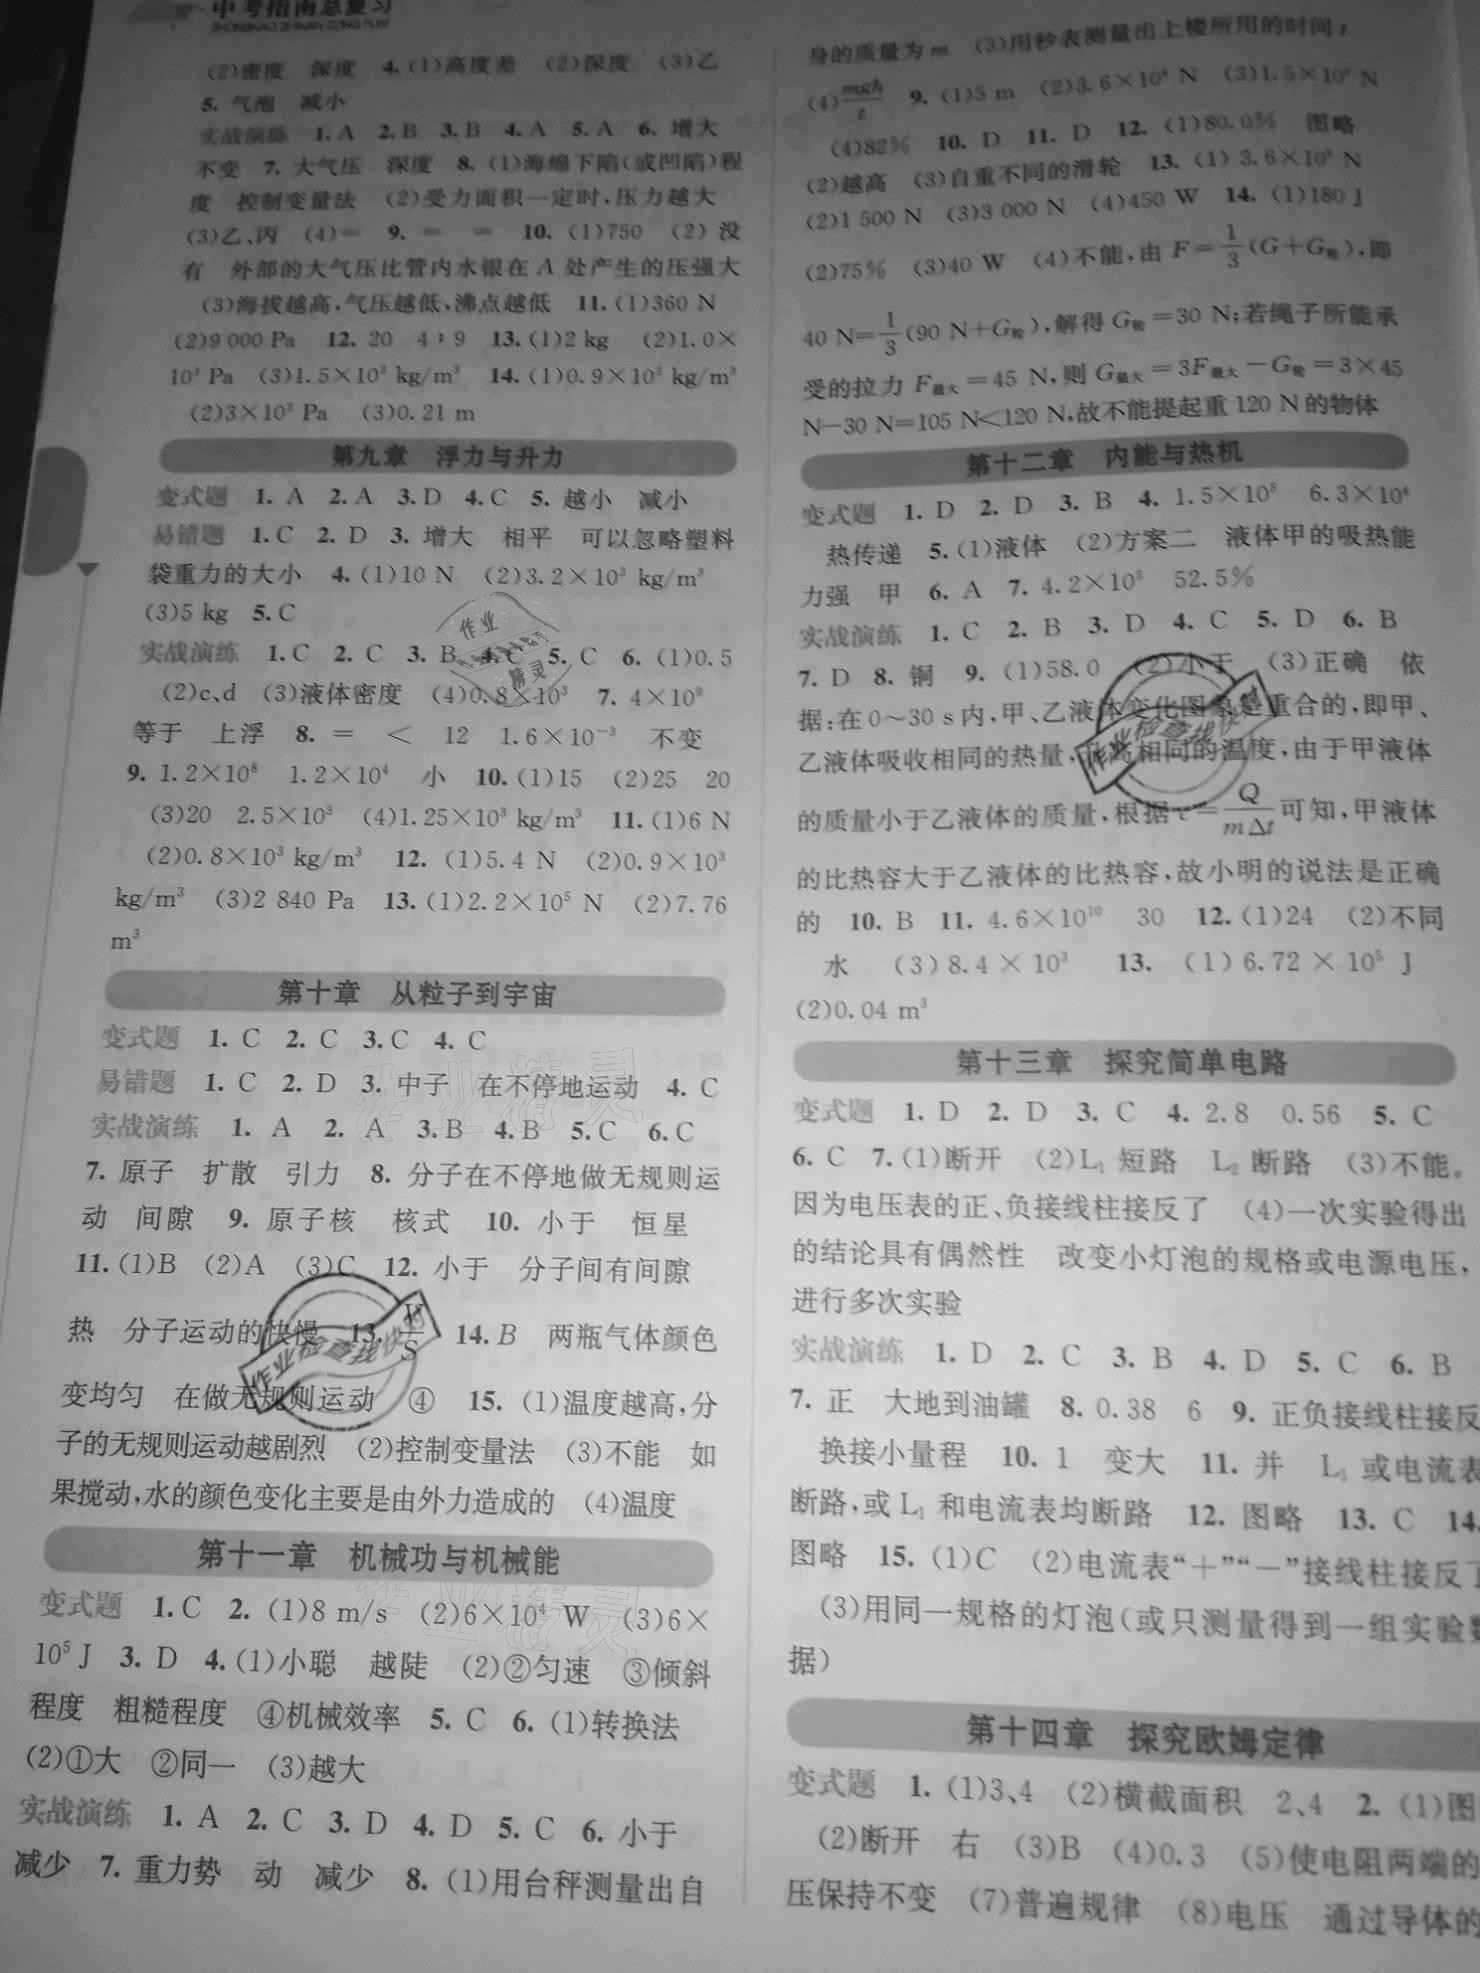 中考指南总复习
ZHONGKAO ZHINAN ZONG FUXI
(2)密度　深度　4.(1)高度差　(2)深度　(3)乙
5. 气泡　减小
实战演练　1. A　2. B　3. B　4. A　5. A　6. 增大
不变　7. 大气压　深度　8. (1)海绵下陷(或凹陷)程
度　控制变量法　(2)受力面积一定时,压力越大
(3)乙、丙　(4)=　9. =　=　10. (1)750　(2) 没
有　外部的大气压比管内水银在 A 处产生的压强大
(3)海拔越高,气压越低,沸点越低　11. (1)360 N
(2)9 000 Pa　12. 20　4∶9　13. (1)2 kg　(2)1.0×
10³ Pa　(3)1.5×10³ kg/m³　14. (1)0.9×10³ kg/m³
(2)3×10³ Pa　(3)0.21 m
第九章　浮力与升力
变式题　1. A　2. A　3. D　4. C　5. 越小　减小
易错题　1. C　2. D　3. 增大　相平　可以忽略塑料
袋重力的大小　4. (1)10 N　(2)3.2×10³ kg/m³
(3)5 kg　5. C
实战演练　1. C　2. C　3. B　4. C　5. C　6. (1)0.5
(2)c、d　(3)液体密度　(4)0.8×10³　7. 4×10⁹
等于　上浮　8. =　<　12　1.6×10⁻³　不变
9. 1.2×10⁸　1.2×10⁴　小　10. (1)15　(2)25　20
(3)20　2.5×10³　(4)1.25×10³ kg/m³　11. (1)6 N
(2)0.8×10³ kg/m³　12. (1)5.4 N　(2)0.9×10³
kg/m³　(3)2 840 Pa　13. (1)2.2×10⁵ N　(2)7.76
m³
第十章　从粒子到宇宙
变式题　1. C　2. C　3. C　4. C
易错题　1. C　2. D　3. 中子　在不停地运动　4. C
实战演练　1. A　2. A　3. B　4. B　5. C　6. C
7. 原子　扩散　引力　8. 分子在不停地做无规则运
动　间隙　9. 原子核　核式　10. 小于　恒星
11. (1)B　(2)A　(3)C　12. 小于　分子间有间隙
热　分子运动的快慢　13. V/S　14. B　两瓶气体颜色
变均匀　在做无规则运动　④　15. (1)温度越高,分
子的无规则运动越剧烈　(2)控制变量法　(3)不能　如
果搅动,水的颜色变化主要是由外力造成的　(4)温度
第十一章　机械功与机械能
变式题　1. C　2. (1)8 m/s　(2)6×10⁴ W　(3)6×
10⁵ J　3. D　4. (1)小聪　越陡　(2)②匀速　③倾斜
程度　粗糙程度　④机械效率　5. C　6. (1)转换法
(2)①大　②同一　(3)越大
实战演练　1. A　2. C　3. D　4. D　5. C　6. 小于
减少　7. 重力势　动　减少　8. (1)用台秤测量出自
身的质量为 m　(3)用秒表测量出上楼所用的时间 t
(4)mgh/t　9. (1)5 m　(2)3.6×10⁴ N　(3)1.5×10⁴ N
(4)82%　10. D　11. D　12. (1)80.0%　图略
(2)越高　(3)自重不同的滑轮　13. (1) 3.6×10³ N
(2)1 500 N　(3)3 000 N　(4)450 W　14. (1)180 J
(2)75%　(3)40 W　(4)不能,由 F=1/3(G+G轮),即
40 N=1/3(90 N+G轮),解得 G轮=30 N;若绳子所能承
受的拉力 F最大=45 N,则 G最大=3F最大-G轮=3×45
N-30 N=105 N<120 N,故不能提起重 120 N 的物体
第十二章　内能与热机
变式题　1. D　2. D　3. B　4. 1.5×10⁵　6.3×10⁴
热传递　5. (1)液体　(2)方案二　液体甲的吸热能
力强　甲　6. A　7. 4.2×10⁵　52.5%
实战演练　1. C　2. B　3. D　4. C　5. D　6. B
7. D　8. 铜　9. (1)58.0　(2)小于　(3)正确　依
据:在 0～30 s 内,甲、乙液体变化图象是重合的,即甲、
乙液体吸收相同的热量,升高相同的温度,由于甲液体
的质量小于乙液体的质量,根据 c=Q/mΔt可知,甲液体
的比热容大于乙液体的比热容,故小明的说法是正确
的　10. B　11. 4.6×10¹⁰　30　12. (1)24　(2)不同
水　(3)8.4×10³　13. (1)6.72×10⁵ J
(2)0.04 m³
第十三章　探究简单电路
变式题　1. D　2. D　3. C　4. 2.8　0.56　5. C
6. C　7. (1)断开　(2)L₁ 短路　L₂ 断路　(3)不能。
因为电压表的正、负接线柱接反了　(4)一次实验得出
的结论具有偶然性　改变小灯泡的规格或电源电压,
进行多次实验
实战演练　1. D　2. C　3. B　4. D　5. C　6. B
7. 正　大地到油罐　8. 0.38　6　9. 正负接线柱接反
换接小量程　10. 1　变大　11. 并　L₁ 或电流表
断路,或 L₁ 和电流表均断路　12. 图略　13. C　14.
图略　15. (1)C　(2)电流表“＋”“－”接线柱接反了
(3)用同一规格的灯泡(或只测量得到一组实验数
据)
第十四章　探究欧姆定律
变式题　1. (1)3、4　(2)横截面积　2、4　2. (1)图
(2)断开　右　(3)B　(4)0.3　(5)使电阻两端的
压保持不变　(7)普遍规律　(8)电压　通过导体的